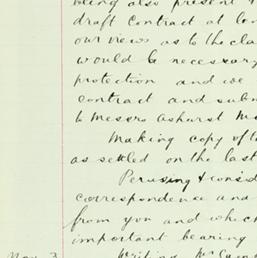 being also present
draft contract at
our views as to the
would be necessary
protection and we
contract and
to Messrs Ashurst
Making copy
as settled on the last
Perusing &
correspondence and
from you and which
important bearing
Nov. 3 Writing